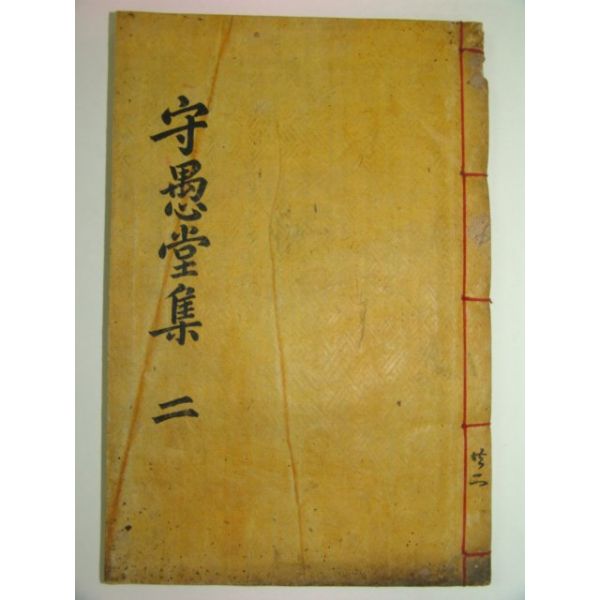 守愚堂集 二
共二